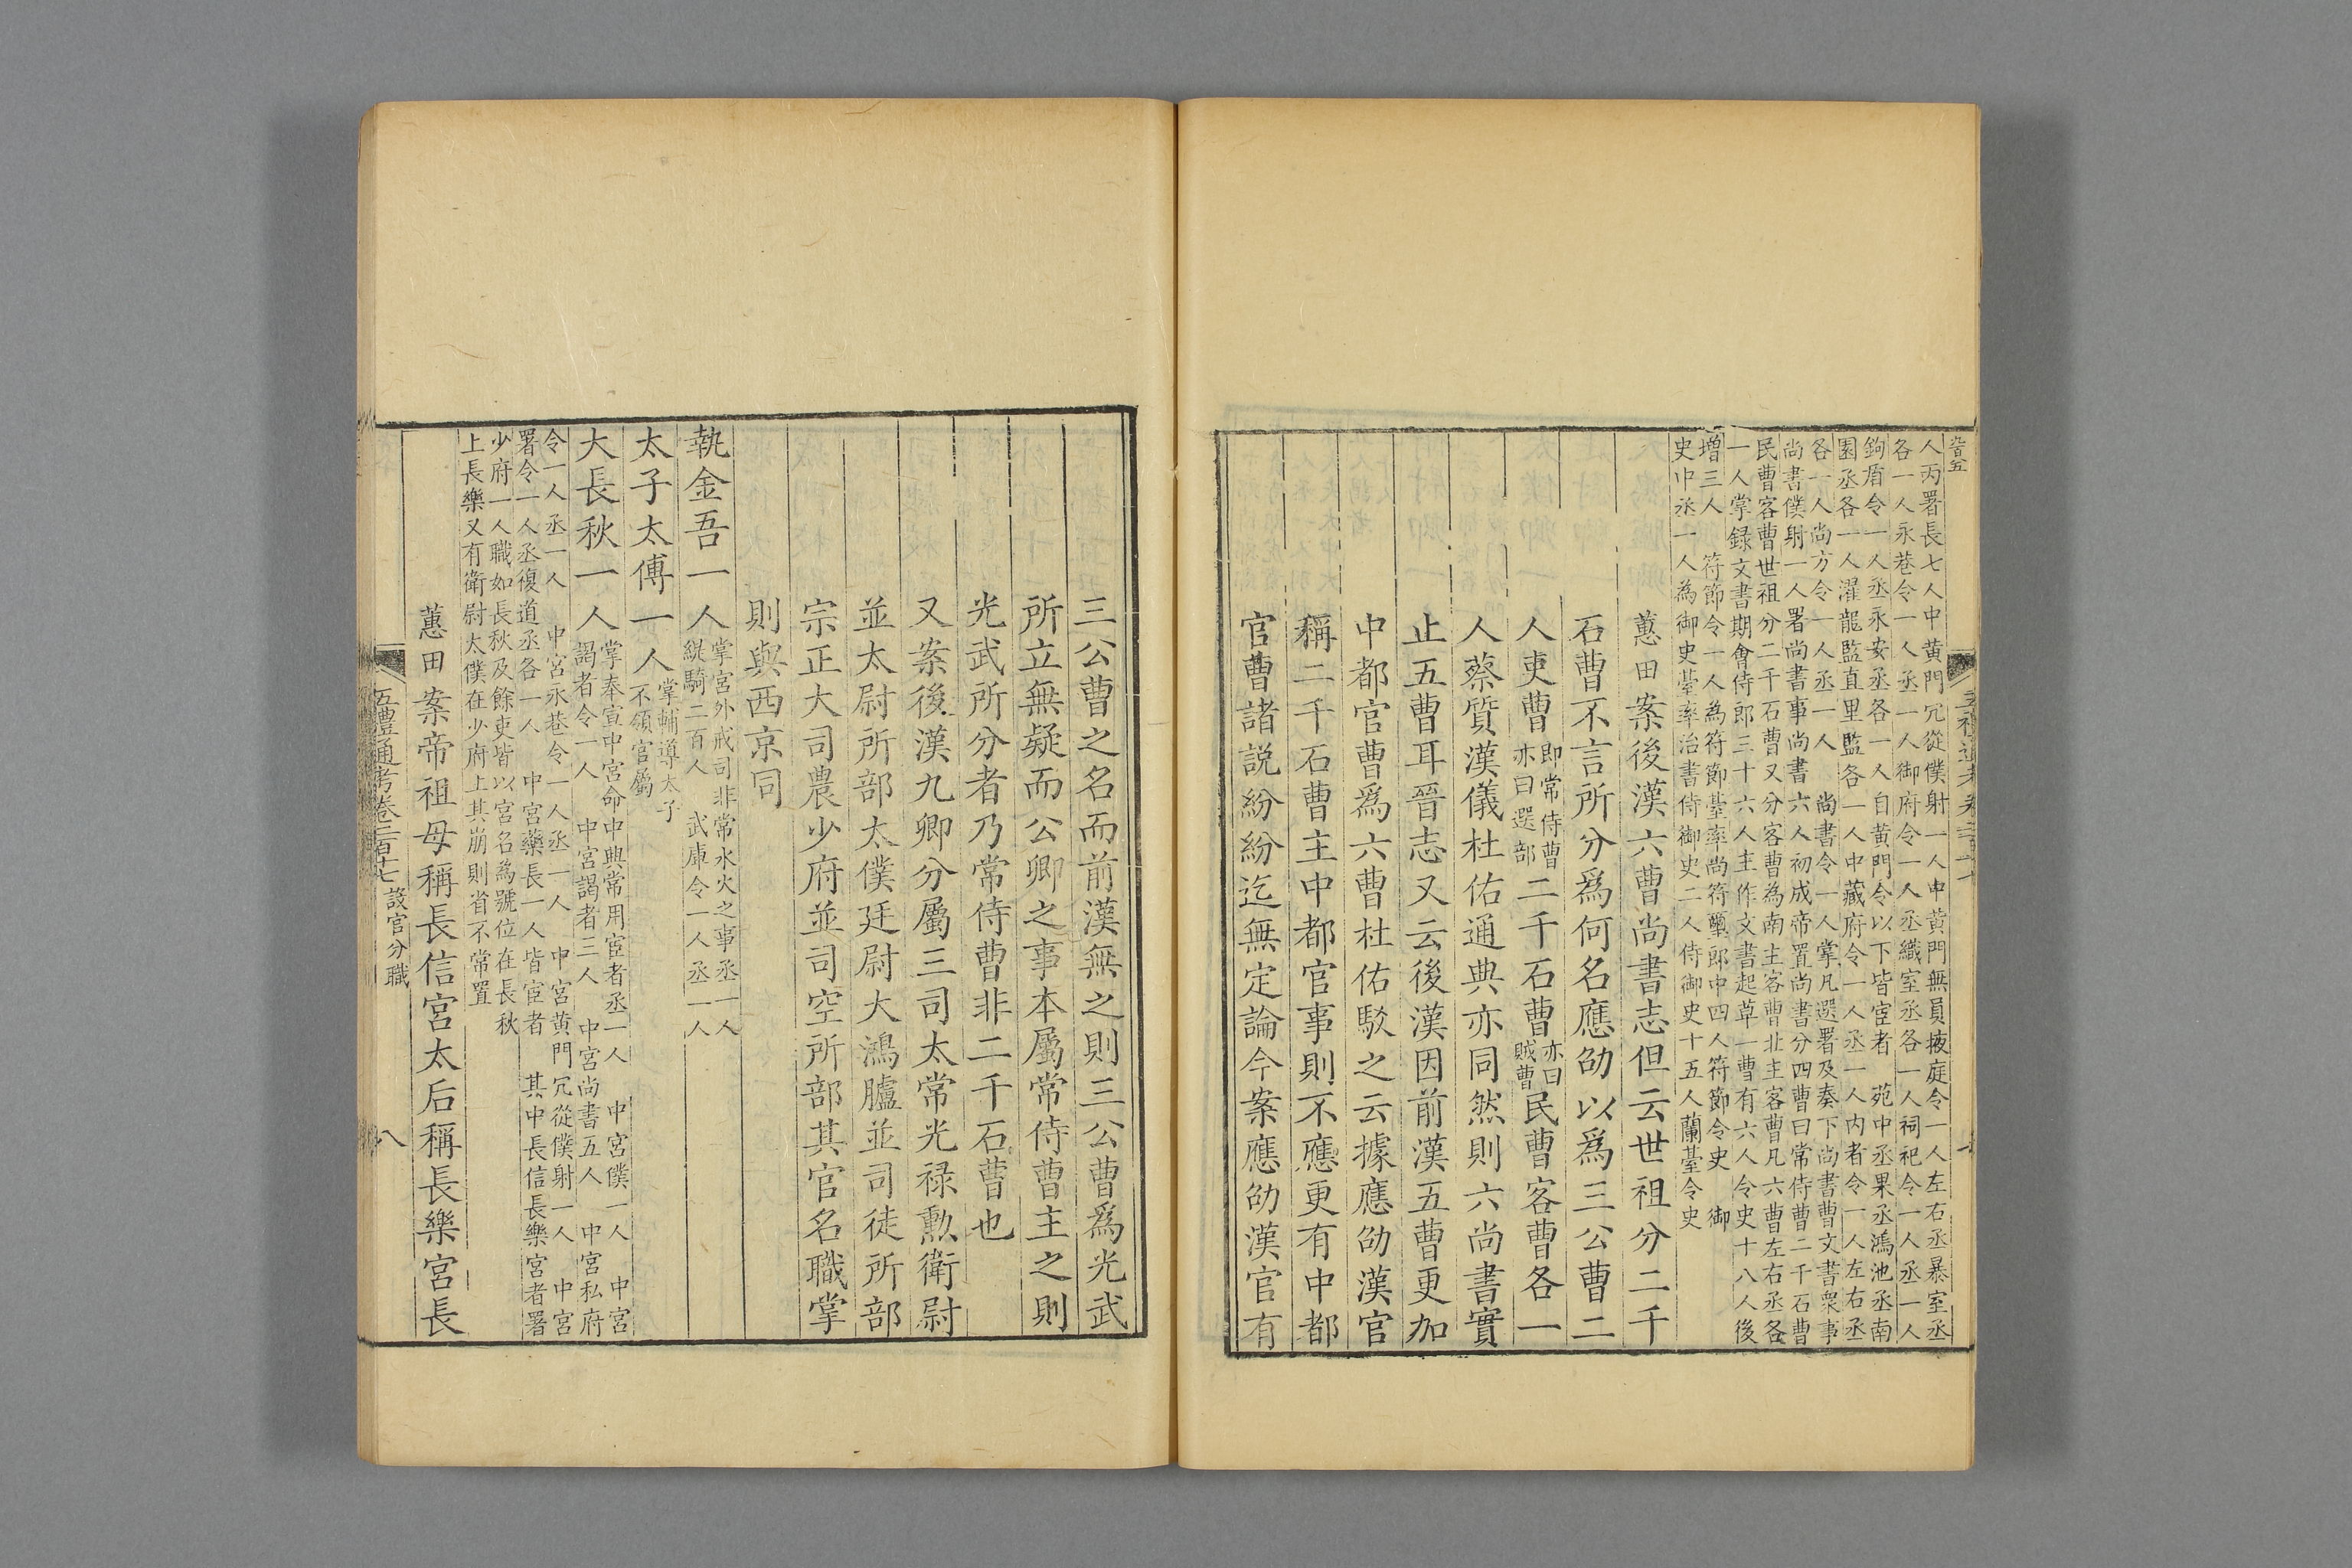 人丙署長七人中黄門冗從僕射一人中黄門無員掖庭令一人左右丞暴室丞
各一人永巷令一人丞一人御府令一人丞織室丞各一人祠祀令一人丞一人
鉤盾令一人丞永安丞各一人自黄門令以下皆宦者　苑中丞果丞鴻池丞南
園丞各一人濯龍監直里監各一人中藏府令一人丞一人内者令一人左右丞
各一人尚方令一人丞一人　尚書令一人掌凡選署及奏下尚書曹文書衆事
尚書僕射一人署尚書事尚書六人初成帝置尚書分四曹曰常侍曹二千石曹
民曹客曹世祖分二千石曹又分客曹為南主客曹北主客曹凡六曹左右丞各
一人掌錄文書期會侍郎三十六人主作文書起草一曹有六人令史十八人後
增三人　符節令一人為符節臺率尚符璽郎中四人符節令史　御
史中丞一人為御史臺率治書侍御史二人侍御史十五人蘭臺令史
蕙田案後漢六曹尚書志但云世祖分二千
石曹不言所分爲何名應劭以爲三公曹二
人吏曹即常侍曹亦曰選部二千石曹亦曰賊曹民曹客曹各一
人蔡質漢儀杜佑通典亦同然則六尚書實
止五曹耳晉志又云後漢因前漢五曹更加
中都官曹爲六曹杜佑駁之云據應劭漢官
稱二千石曹主中都官事則不應更有中都
官曹諸説紛紛迄無定論今案應劭漢官有
三公曹之名而前漢無之則三公曹爲光武
所立無疑而公卿之事本屬常侍曹主之則
光武所分者乃常侍曹非二千石曹也
又案後漢九卿分屬三司太常光禄勲衛尉
並太尉所部太僕廷尉大鴻臚並司徒所部
宗正大司農少府並司空所部其官名職掌
則與西京同
執金吾一人掌宮外戒司非常水火之事丞一人
緹騎二百人　武庫令一人丞一人
太子太傅一人掌輔導太子
不領官屬
大長秋一人掌奉宣中宮命中典常用宦者丞一人　中宮僕一人　中宮
謁者令一人　中宮謁者三人　中宮尚書五人　中宮私府
令一人丞一人　中宮永巷令一人丞一人　中宮黄門冗從僕射一人　中宮
署令一人丞復道丞各一人　中宮藥長一人皆宦者　其中長信長樂宮者署
少府一人職如長秋及餘吏皆以宮名為號位在長秋
上長樂又有衛尉太僕在少府上其崩則省不常置
蕙田案帝祖母稱長信宮太后稱長樂宮長
五禮通考卷二百十七　設官分職
八